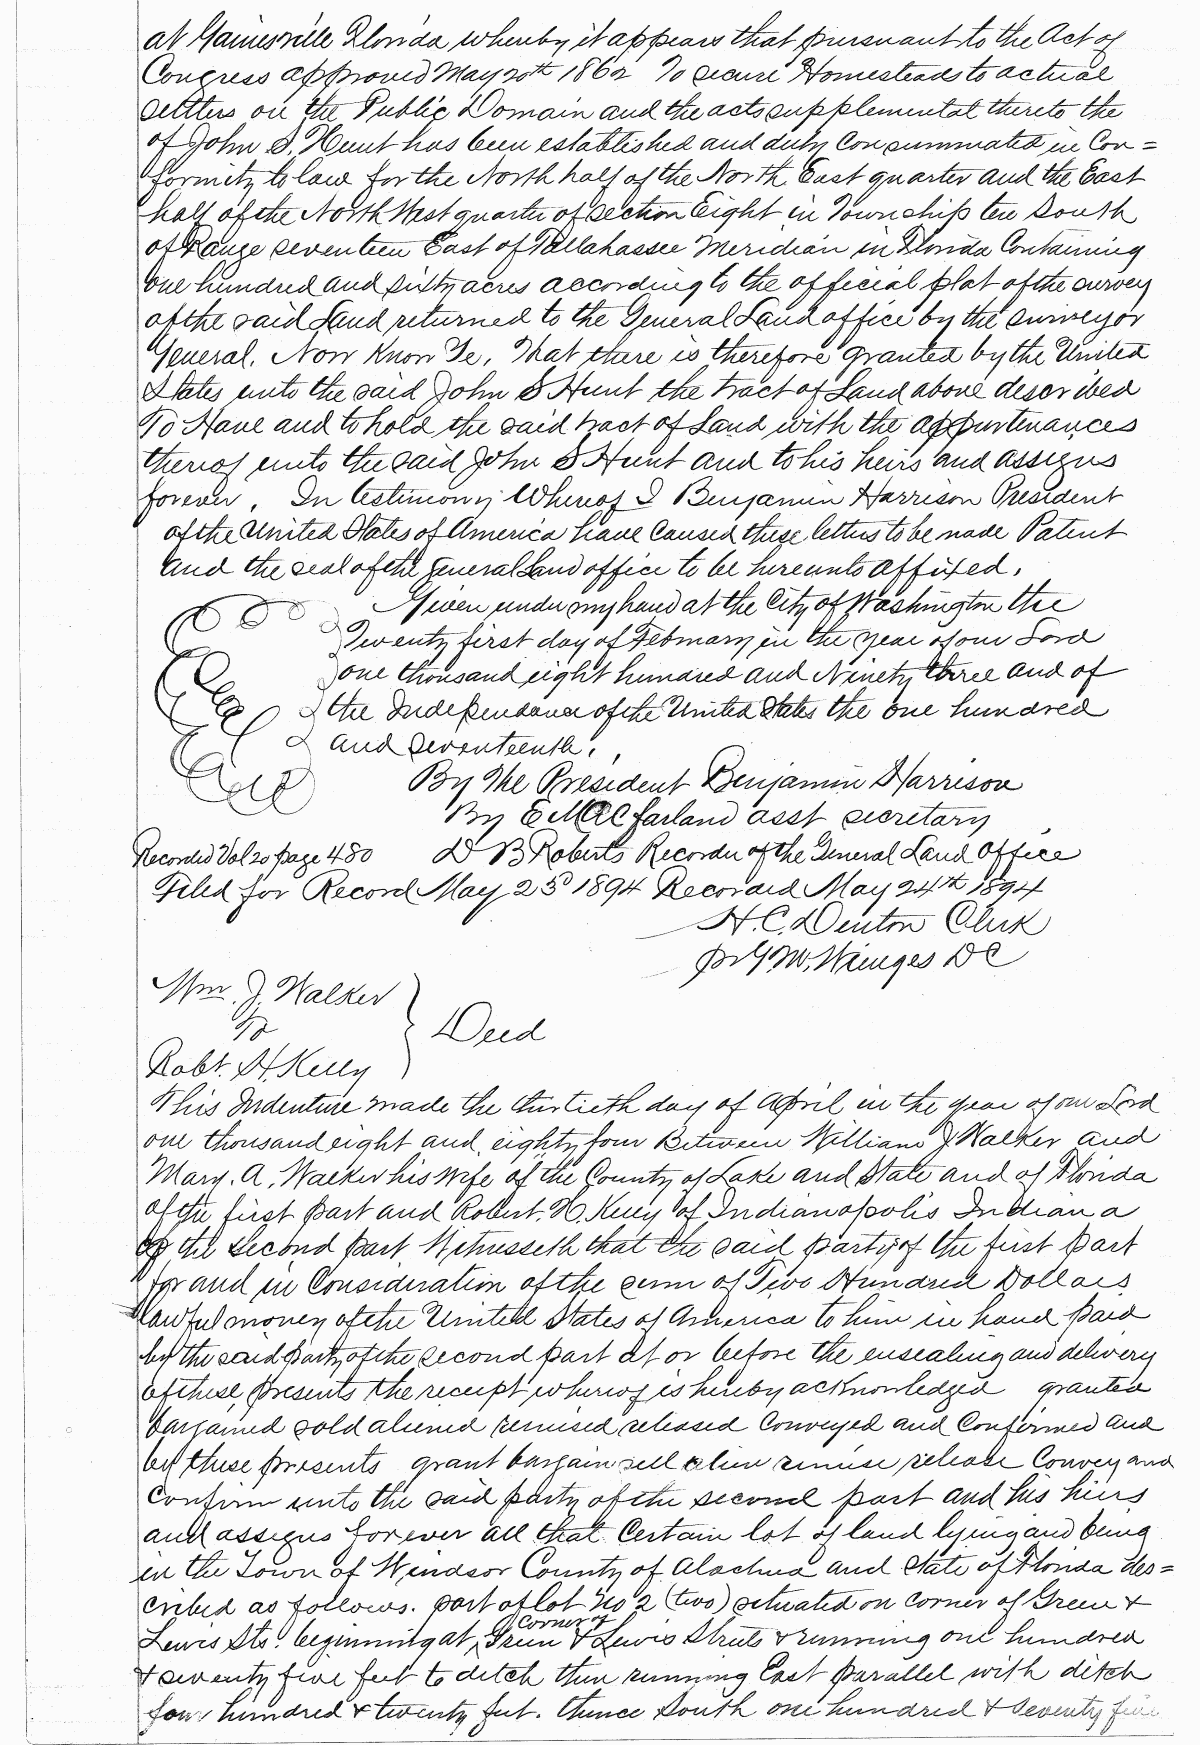 at Gainesville Florida whereby it appears that pursuant to the Act of
Congress approved May 20th 1862 To secure Homesteads to actual
settlers on the Public Domain and the acts supplemental thereto the
of John S. Hunt has been established and duly consummated in Con=
formity to law for the North half of the North East quarter and the East
half of the North West quarter of section Eight in Township ten South
of Range seventeen East of Tallahassee Meridian in Florida Containing
one hundred and sixty acres according to the official plat of the survey
of the said Land returned to the General Land office by the surveyor
General. Now Know Ye, That there is therefore granted by the United
States unto the said John S Hunt the tract of Land above described
To Have and to hold the said tract of Land with the appurtenances
thereof unto the said John S Hunt and to his heirs and assigns
forever. In testimony Whereof I Benjamin Harrison President
of the United States of America have caused these letters to be made Patent
and the seal of the General Land office to be hereunto affixed.
Given under my hand at the City of Washington the
Twenty first day of February in the year of our Lord
one thousand eight hundred and Ninety three and of
the Independance of the United States the one hundred
and seventeenth.
By The President Benjamin Harrison
By E Macfarland asst secretary
Recorded Vol 20 page 480 D B Roberts Recorder of the General Land Office
Filed for Record May 23 1894 Recorded May 24th 1894
H. C. Denton Clerk
pr G. M. Wienges DC
Wm. J. Walker
To
Deed
Robt. H. Kelly
This Indenture made the thirtieth day of April in the year of our Lord
one thousand eight and eighty four Between William J Walker and
Mary. A. Walker his wife of the County of Lake and State and of Florida
of the first part and Robert. H. Kelly of Indianapolis Indiana
of the second part. Witnesseth that the said party of the first part
for and in Consideration of the sum of Two Hundred Dollars
lawful money of the United States of America to him in hand paid
by the said party of the second part at or before the ensealing and delivery
of these presents the receipt whereof is hereby acknowledged granted
bargained sold aliened remised released Conveyed and Confirmed and
by these presents grant bargain sell alien remise release Convey and
Confirm unto the said party of the second part and his heirs
and assigns forever all that Certain lot of land lying and being
in the Town of Windsor County of Alachua and State of Florida des=
cribed as follows. part of lot No 2 (two) situated on corner of Green &
Lewis Sts. beginning at corner of Green & Lewis Streets & running one hundred
& seventy five feet to ditch then running East parallel with ditch
four hundred & twenty feet. thence South one hundred & seventy five